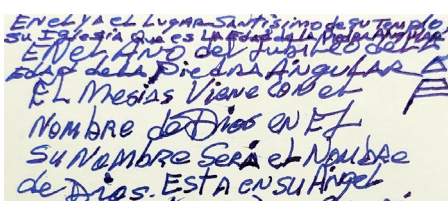 EN EL YA EL LUGAR SANTísimo de su Templo
su Iglesia que es LA EDAD de LA PIEDRA ANGULAR
EN EL AÑO del Jubileo de LA
EDAD de LA PIEDRA ANGULAR
EL Mesias Viene con el
NOMbRE de Dios EN EL
SU NOMBRE SERÁ el NOMbRE
de Dios. ESTA EN SU Ángel